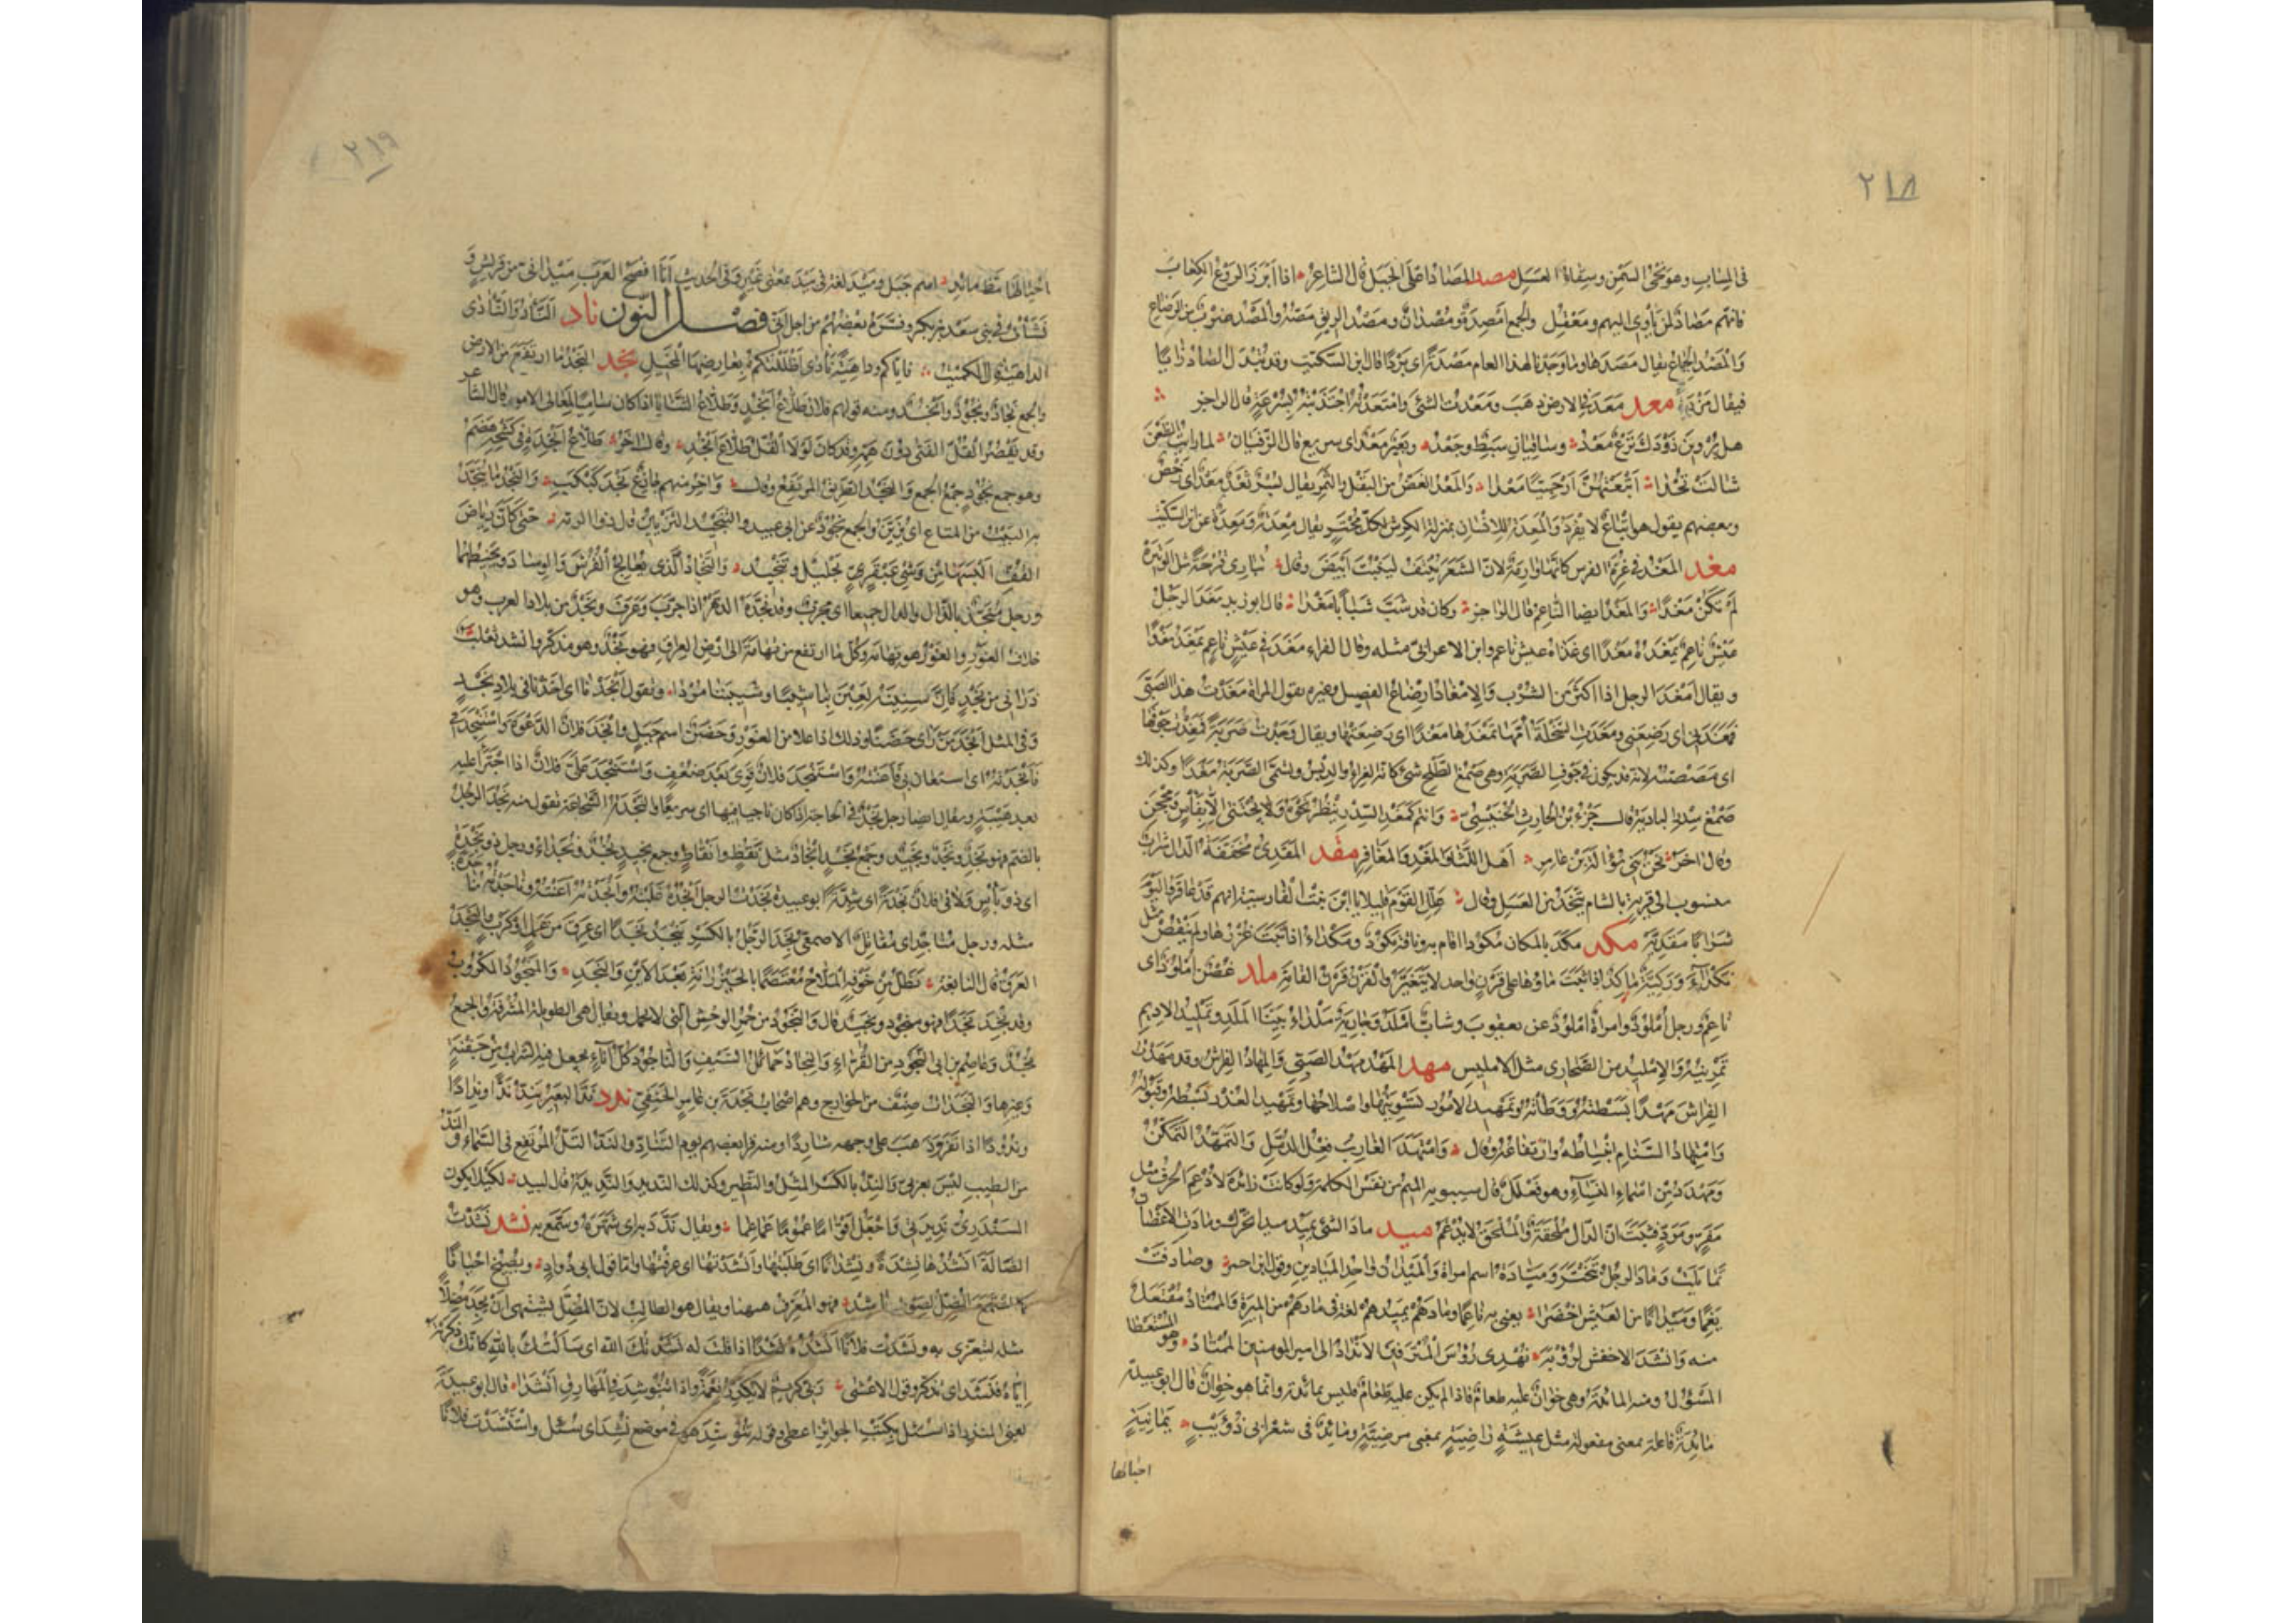 ٢١٨
فى السِّابِ وهو نِحْىُ السَّمْنِ وسِقاءُ العَسَلِ مصد المَصَادُ اعلَى الجبَل قال الشاعر اذا ابرَزَ الروعُ الكعابَ
فانهم مَصَادٌ لمن يأوى اليهم ومعقِل والجمع امصدة ومُصدان ومصد الريق مصّه والمصد ضرب من الرضاع
والمصد الجماع يقال مصدها وما وجدنا لهذا العام مصدة اى بردًا قال ابن السكيت وقد تبدل الصاد زايا
فيقال مَزْدَة معد معد فى الارض ذهب ومعدت الشئ وامتعدته اجتذبته بسرعة قال الراجز
هل يروين ذودك نزع معد وساقيان سبط وجعد وبعير معد اى سريع قال الزفيان لما رايت الظعن
شالت تحدا اتبعتهن ارحبيا معدا والمعد الغض من البقل والثمر يقال بسر ثعد معد اى رخص
وبعضهم يقول هو اتباع لا يفرد والمعدة للانسان بمنزلة الكرش لكل مجتر ويقال معدة ومعدة عن ابن السكيت
مغد المغد فى غرة الفرس كانها وارمة لان الشعر ينتف لينبت ابيض وقال تبارى قرحة مثل الوتيرة
لم تكن مغدا والمغد ايضا الناعم قال الراجز وكان قد شب شبابا مغدا قال ابو زيد مغد الرجل
عيش ناعم يمغده مغدا اى غذاه عيش ناعم وابن الاعرابى مثله وقال الفراء مغد فى عيش ناعم يمغد مغدا
ويقال امغد الرجل اذا اكثر من الشرب والامغاد ارضاع الفصيل وغيره تقول المراة مغدت هذا الصبى
فمغدنى اى رضعنى ومغدت السخلة امها تمغدها مغدا اى رضعتها ويقال وجدت صربة فمغدت جوفها
اى مصصته لانه قد يكون فى جوف الصربة وهى صمغ الطلح شئ كانه الغراء والدبس وتسمى الصربة مغدا وكذلك
صمغ سدر البادية قال جزء بن الحارث وانتم كمغد السدر ينظر نحوه ولا يجتنى الا بفاس ومحجن
وقال اخر نحن بنى سواة بن عامر اهل اللثى والمغد والمغافر مقد المقدى مخففة الدال شراب
منسوب الى قرية بالشام يتخذ من العسل وقال ظلل القوم قليلا يا ابن بنت الفارسية انهم قد عاقروا اليوم
شرابا مقدية مكد مكد بالمكان مكودا اقام به وناقة مكود ومكداء اذا ثبت غزرها ولم ينقص مثل
نكداء وركية ماكد اذا ثبت ماؤها على قرن واحد لا يتغير والقرن قرن القامة ملد غصن املود اى
ناعم ورجل املود وامراة املود عن يعقوب وشاب املد وجارية ملداء بينا الملد وتمليد الاديم
تمرينه والامليد من الصحارى مثل الامليس مهد المهد مهد الصبى والمهاد الفراش وقد مهدت
الفراش مهدا بسطته ووطاته وتمهيد الامور تسويتها واصلاحها وتمهيد العذر بسطه وقبوله
وامتهاد السنام انبساطه وارتفاعه وقال وامتهد الغارب فعل الدمل والتمهد التمكن
ومهدد من اسماء النساء وهو فعلل قال سيبويه الميم من نفس الكلمة ولو كانت زائدة لادغم الحرف مثل
مفر ومرد فثبت ان الدال ملحقة والملحق لا يدغم ميد ماد الشئ يميد ميدا تحرك ومادت الاغصان
تمايلت وماد الرجل تبختر وميادة اسم امراة والميدان واحد الميادين وقول ابن احمر وصادفت
نعيما وميدانا من العيش اخضرا يعنى به ناعما ومادهم يميدهم لغة فى مارهم من الميرة والممتاد مفتعل
منه وانشد الاخفش لرؤبة نهدى رؤس المترفين الانداد الى امير المومنين الممتاد وهو المستعطا
المسؤل ومنه المائدة وهى خوان عليه طعام فاذا لم يكن عليه طعام فليس بمائدة وانما هو خوان قال ابو عبيدة
مائدة فاعلة بمعنى مفعولة مثل عيشة راضية بمعنى مرضية ومائد فى شعر ابى ذويب يمانية
احيالها
٢١٩
احيالها مظ مائد اسم جبل وميد لغة فى بيد بمعنى غير وفى الحديث انا افصح العرب ميد انى من قريش و
نشات فى بنى سعد بن بكر وفسره بعضهم من اجل انى فصل النون ناد الناد والنادى
الداهية قال الكميت فاياكم وداهية نادى اظلتكم بعارضها المخيل نجد النجد ما ارتفع من الارض
والجمع نجاد ونجود وانجد ومنه قولهم فلان طلاع انجد وطلاع الثنايا اذا كان ساميا لمعالى الامور قال الشاعر
وقد يقصر القل الفتى دون همه وقد كان لولا القل طلاع انجد وقال اخر طلاع انجدة فى كشحه هضم
وهو جمع نجود جمع الجمع والنجد الطريق المرتفع وقال واخر منهم قاطع نجد كبكب والنجد ما ينجد
به البيت من المتاع اى يزين والجمع نجود عن ابى عبيد والتنجيد التزيين قال ذوالرمة حتى كان رياض
القف البسها من وشى عبقر تجليل وتنجيد والنجاد الذى يعالج الفرش والوساد ويخيطهما
ورجل منجد بالدال والذال جميعا اى مجرب وقد نجده الدهر اذا جرب وعرف ونجد من بلاد العرب وهو
خلاف الغور والغور هو تهامة وكل ما ارتفع من تهامة الى ارض العراق فهو نجد وهو مذكر وانشد ثعلب
ذرانى من نجد فان سنينه لعبن بنا شيبا وشيبننا مردا وتقول انجدنا اى اخذنا فى بلاد نجد
وفى المثل انجد من راى حضنا وذلك اذا علا من الغور وحضن اسم جبل وانجد فلان الدعوة واستنجدنى
فانجدته اى استعان بى فاعنته واستنجد فلان قوى بعد ضعف واستنجد على فلان اذا اجترا عليه
بعد هيبة ويقال ايضا رجل نجد فى الحاجة اذا كان ناجيا فيها اى سريعا والنجدة الشجاعة تقول منه نجد الرجل
بالضم فهو نجد ونجد ونجيد وجمع نجد انجاد مثل يقظ وايقاظ وجمع نجيد نجد ونجداء ورجل ذو نجدة
اى ذو باس ولاقى فلان نجدة اى شدة ابو عبيدة نجدت الرجل انجده غلبته وانجدته اعنته
مثله ورجل مناجد اى مقاتل الاصمعى نجد الرجل بالكسر ينجد نجدا اى عرق من عمل او كرب والنجد
العرق قال النابغة يظل من خوفه الملاح معتصما بالخيزرانة بعد الاين والنجد والمنجود المكروب
وقد نجد نجدا فهو منجود ونجيد قال والنجود من حمر الوحش التى لا تحمل ويقال هى الطويلة المشرفة والجمع
نجد وعاصم بن ابى النجود من القراء والنجاد حمائل السيف والناجود كل اناء يجعل فيه الشراب من جفنة
وغيرها والنجدات صنف من الخوارج وهم اصحاب نجدة بن عامر الحنفى ندد ند البعير يند ندا وندادا
وندودا اذا نفر وذهب على وجهه شاردا ومنه قرا بعضهم يوم التناد والند التل المرتفع فى السماء والند
من الطيب ليس بعربى والند بالكسر المثل والنظير وكذلك النديد والنديدة قال لبيد لكيلا يكون
السندرى نديدتى واجعل اقواما عموما عماعما ويقال ندد به اى شهره وسمع به نشد نشدت
الضالة انشدها نشدة ونشدانا اى طلبتها وانشدتها اى عرفتها واما قول ابى دواد ويصيخ احيانا
كما استمع المضل لصوت ناشد فهو المعرف ههنا ويقال هو الطالب لان المضل يشتهى ان يجد مضلا
مثله ليتعزى به ونشدت فلانا انشده نشدا اذا قلت له نشدتك الله اى سالتك بالله كانك ذكرته
اياه فنشد اى تذكر وقول الاعشى ربى كريم لا يكدر نعمة واذا تنوشد فى المهارق انشدا قال ابو عبيدة
يعنى النعمان بن المنذر اذا سئل بكتب الجوائز اعطى وقوله تنوشد هو فى موضع نشد اى سئل واستنشدت فلانا